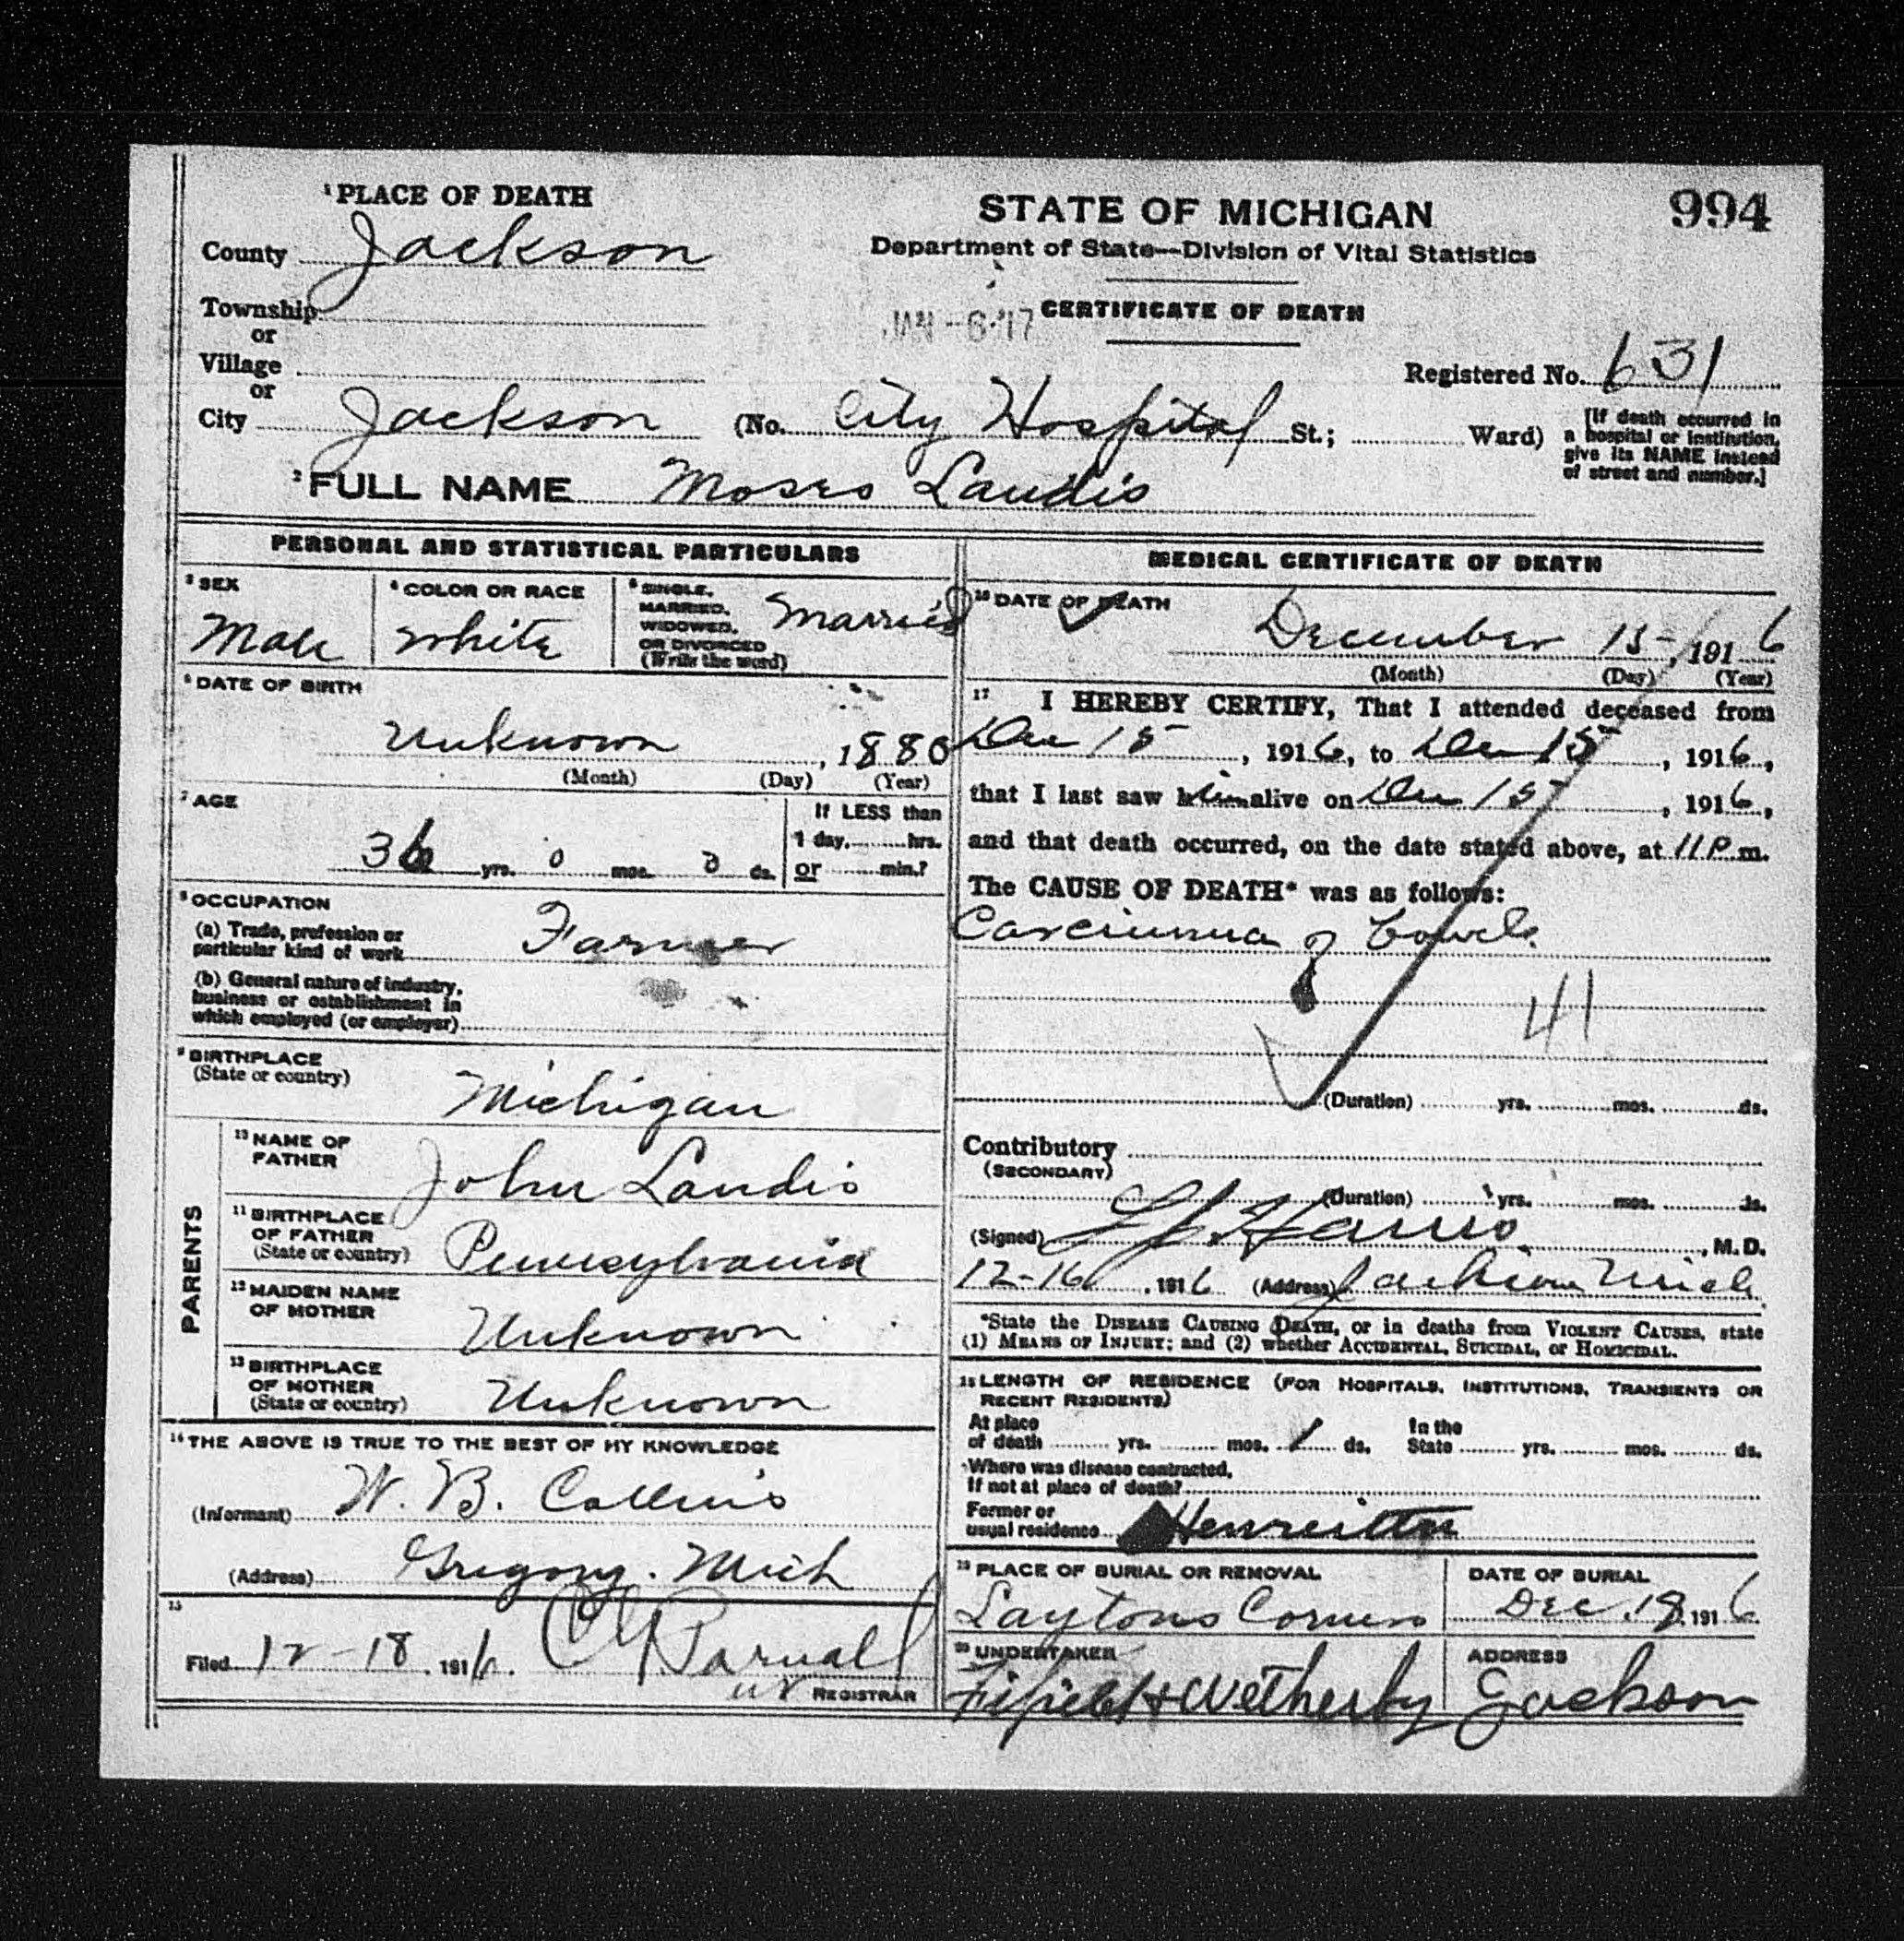 ¹PLACE OF DEATH
County Jackson
Township
or
Village
or
City Jackson (No. City Hospital St.; Ward)
STATE OF MICHIGAN
Department of State—Division of Vital Statistics
CERTIFICATE OF DEATH
994
JAN -6 '17
Registered No. 631
[If death occurred in
a hospital or institution,
give its NAME instead
of street and number.]
²FULL NAME Moses Landis
PERSONAL AND STATISTICAL PARTICULARS
³SEX
Male
⁴COLOR OR RACE
White
⁵SINGLE,
MARRIED,
WIDOWED,
OR DIVORCED
(Write the word)
Married
⁶DATE OF BIRTH
Unknown, 1880
(Month) (Day) (Year)
⁷AGE
36 yrs. 0 mos. 0 ds.
If LESS than
1 day, hrs.
or min.?
⁸OCCUPATION
(a) Trade, profession or
particular kind of work Farmer
(b) General nature of industry,
business or establishment in
which employed (or employer)
⁹BIRTHPLACE
(State or country)
Michigan
PARENTS
¹⁰NAME OF
FATHER
John Landis
¹¹BIRTHPLACE
OF FATHER
(State or country)
Pennsylvania
¹²MAIDEN NAME
OF MOTHER
Unknown
¹³BIRTHPLACE
OF MOTHER
(State or country)
Unknown
¹⁴THE ABOVE IS TRUE TO THE BEST OF MY KNOWLEDGE
(Informant) W. B. Collins
(Address) Gregory. Mich
¹⁵
Filed 12-18, 1916.
REGISTRAR
MEDICAL CERTIFICATE OF DEATH
¹⁶DATE OF DEATH
December 15, 1916
(Month) (Day) (Year)
¹⁷ I HEREBY CERTIFY, That I attended deceased from
Dec 15, 1916, to Dec 15, 1916,
that I last saw him alive on Dec 15, 1916,
and that death occurred, on the date stated above, at 11 P.m.
The CAUSE OF DEATH* was as follows:
Carcinoma of bowels
41
(Duration) yrs. mos. ds.
Contributory
(SECONDARY)
(Duration) yrs. mos. ds.
(Signed) Harris, M.D.
12-16, 1916 (Address) Jackson Mich
*State the DISEASE CAUSING DEATH, or in deaths from VIOLENT CAUSES, state
(1) MEANS OF INJURY; and (2) whether ACCIDENTAL, SUICIDAL, or HOMICIDAL.
¹⁸LENGTH OF RESIDENCE (FOR HOSPITALS, INSTITUTIONS, TRANSIENTS OR
RECENT RESIDENTS)
At place
of death yrs. mos. 1 ds.
In the
State yrs. mos. ds.
Where was disease contracted,
If not at place of death?
Former or
usual residence Henrietta
¹⁹PLACE OF BURIAL OR REMOVAL
Laytons Corners
DATE OF BURIAL
Dec. 18, 1916
²⁰UNDERTAKER
Fifield & Wetherby
ADDRESS
Jackson